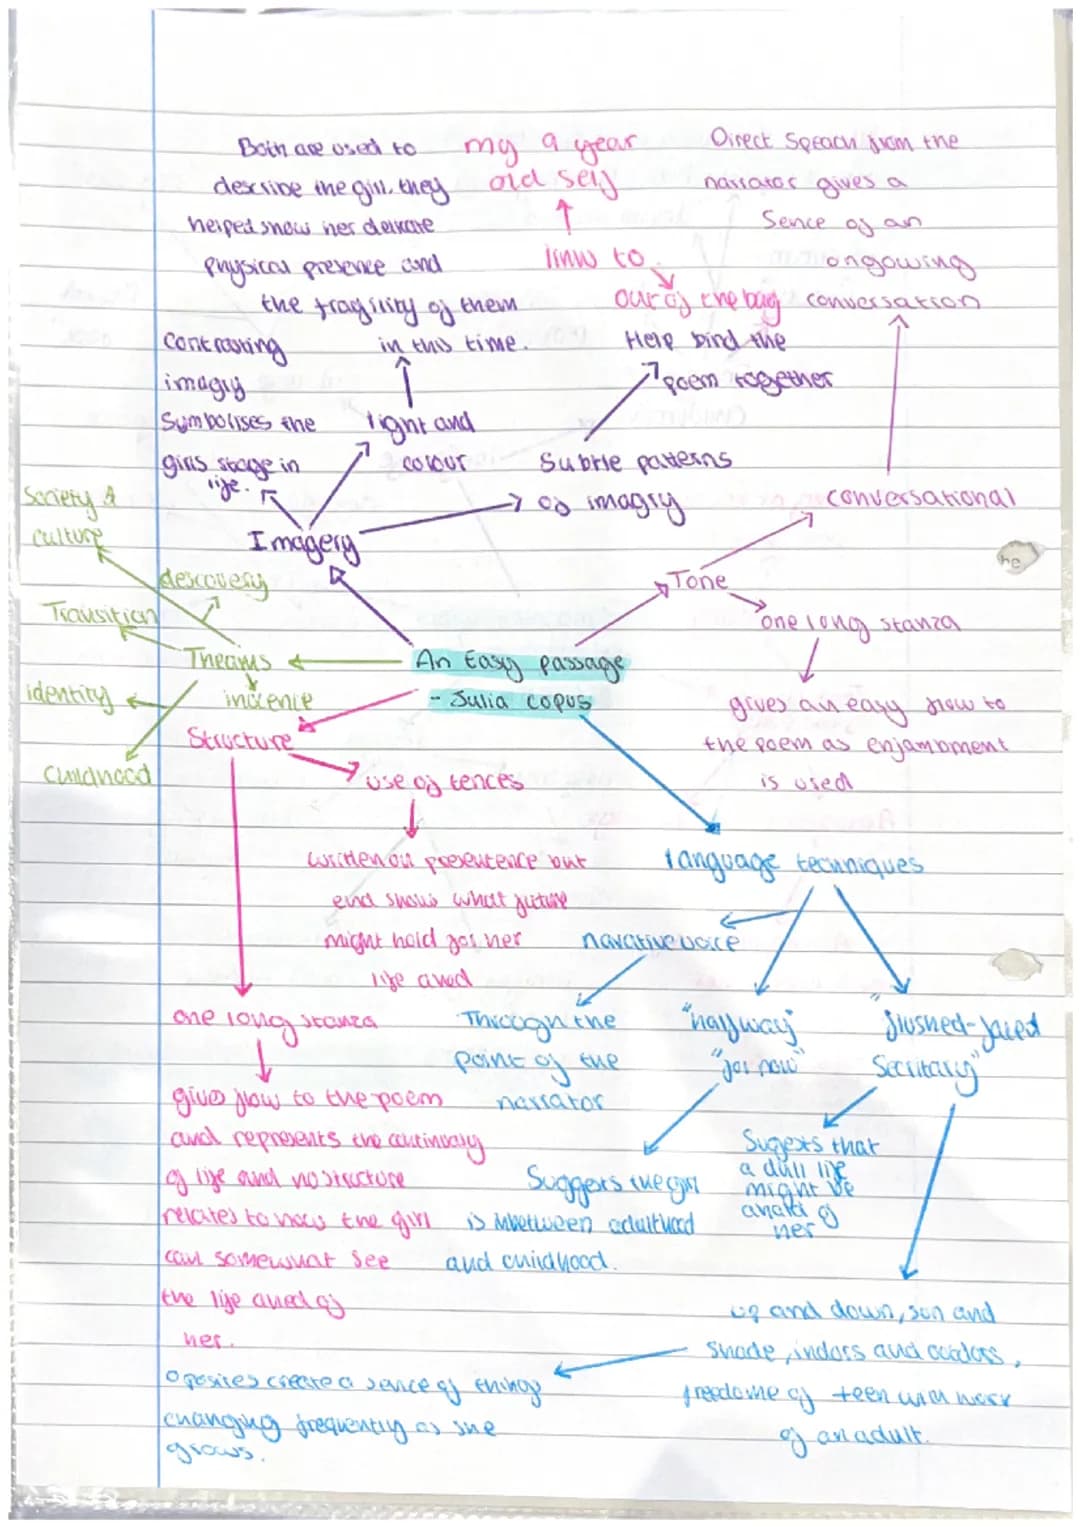 Both are used to
describe the girl. they
helped show her delicate
physical presence and
the fragility of them
in this time.
my 9 year
old self
link to
out of the bag
Direct Speach from the
narrator gives a
Sence of an
ongowing
conversation
Help bind the
poem together
Contrasting
imagry
Symbolises the
girls stage in
life.
light and
colour
Subtle patterns
of imagry
conversational
Imagery
Society &
culture
descovery
Transition
Theams
identity
inocence
childhood
Tone
one long stanza
gives an easy flow to
the poem as enjambment
is used
An Easy passage
- Julia Copus
Structure
use of tences
written in presentence but
end shows what future
might hold for her
life ahed
one long stanza
gives flow to the poem
and represents the continuity
of life and no structure
relates to how the girl
can somewhat see
the life ahed of
her.
language techniques
narative voice
Through the
point of the
narrator
"halfway"
"for now"
Suggests the girl
is inbetween adulthood
and childhood.
"flushed-faced
Secritary"
Sugests that
a dull life
might be
ahead of
her
up and down, sun and
shade, indors and outdors,
freedome of teen with work
of an adult.
oposites create a sence of things
changing frequently as she
grows.
he